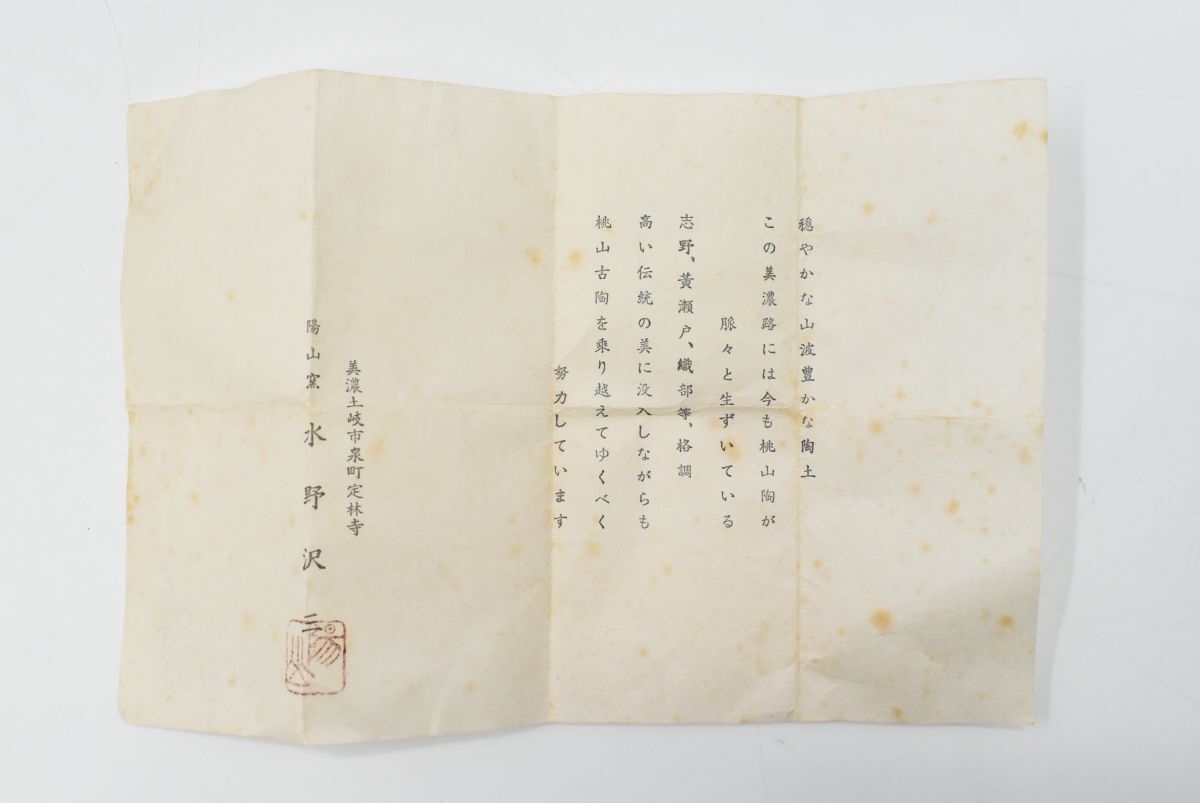 穏やかな山波豊かな陶土
この美濃路には今も桃山陶が
脈々と生ずいている
志野、黄瀬戸、織部等、格調
高い伝統の美に没入しながらも
桃山古陶を乗り越えてゆくべく
努力しています
美濃土岐市泉町定林寺
陽山窯 水野沢三
陽山